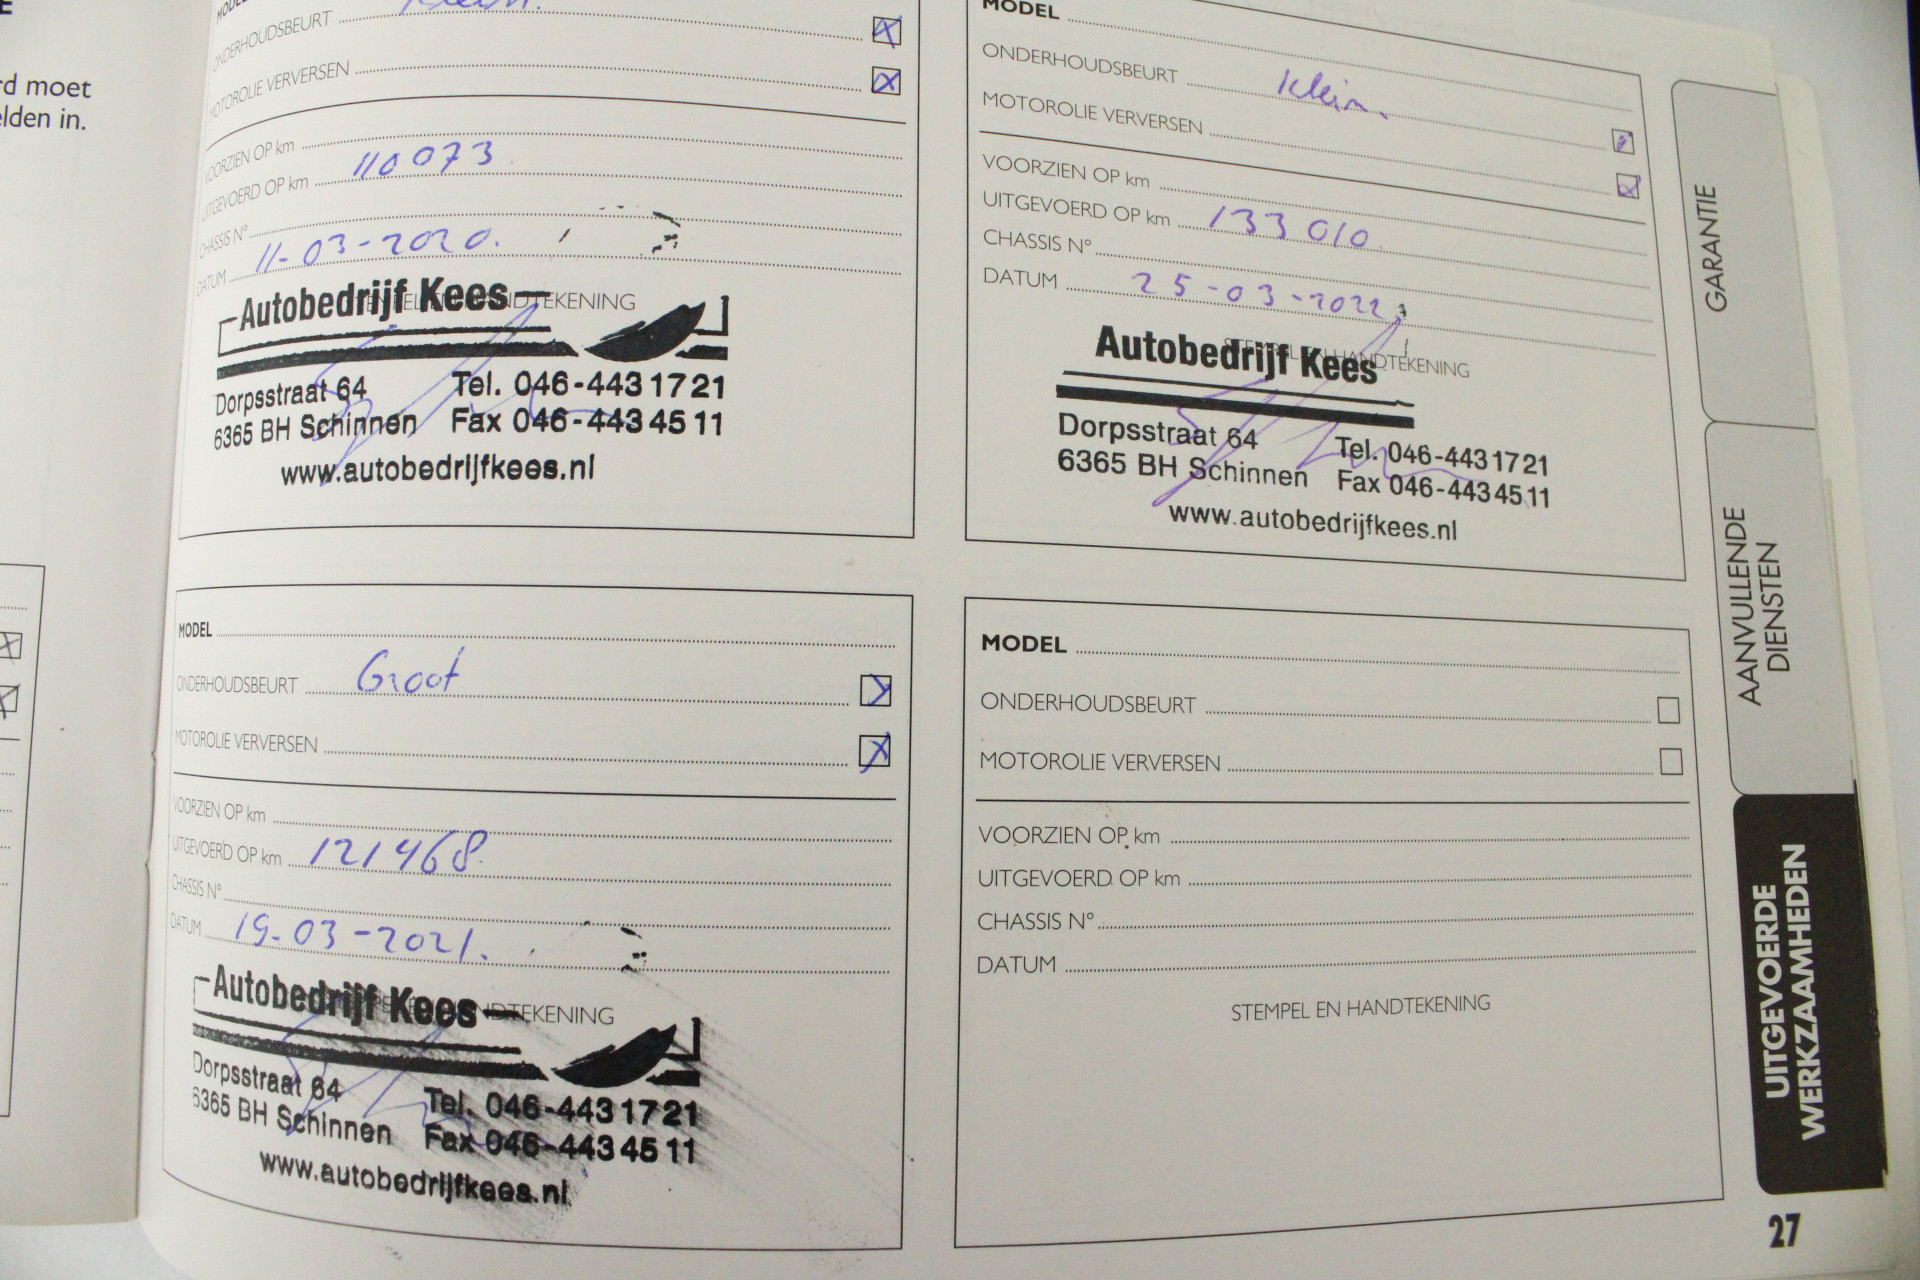 E
rd moet
elden in.
MODEL
ONDERHOUDSBEURT Klein.
MOTOROLIE VERVERSEN
VOORZIEN OP km
UITGEVOERD OP km 110073
CHASSIS N°
DATUM 11-03-2020.
STEMPEL EN HANDTEKENING
Autobedrijf Kees
Dorpsstraat 64 Tel. 046-443 17 21
6365 BH Schinnen Fax 046-443 45 11
www.autobedrijfkees.nl
MODEL
ONDERHOUDSBEURT Groot
MOTOROLIE VERVERSEN
VOORZIEN OP km
UITGEVOERD OP km 121468.
CHASSIS N°
DATUM 19-03-2021.
STEMPEL EN HANDTEKENING
Autobedrijf Kees
Dorpsstraat 64 Tel. 046-443 17 21
6365 BH Schinnen Fax 046-443 45 11
www.autobedrijfkees.nl
MODEL
ONDERHOUDSBEURT Klein.
MOTOROLIE VERVERSEN
VOORZIEN OP km
UITGEVOERD OP km 133010.
CHASSIS N°
DATUM 25-03-2022
STEMPEL EN HANDTEKENING
Autobedrijf Kees
Dorpsstraat 64 Tel. 046-443 17 21
6365 BH Schinnen Fax 046-443 45 11
www.autobedrijfkees.nl
MODEL
ONDERHOUDSBEURT
MOTOROLIE VERVERSEN
VOORZIEN OP km
UITGEVOERD OP km
CHASSIS N°
DATUM
STEMPEL EN HANDTEKENING
GARANTIE
AANVULLENDE
DIENSTEN
UITGEVOERDE
WERKZAAMHEDEN
27